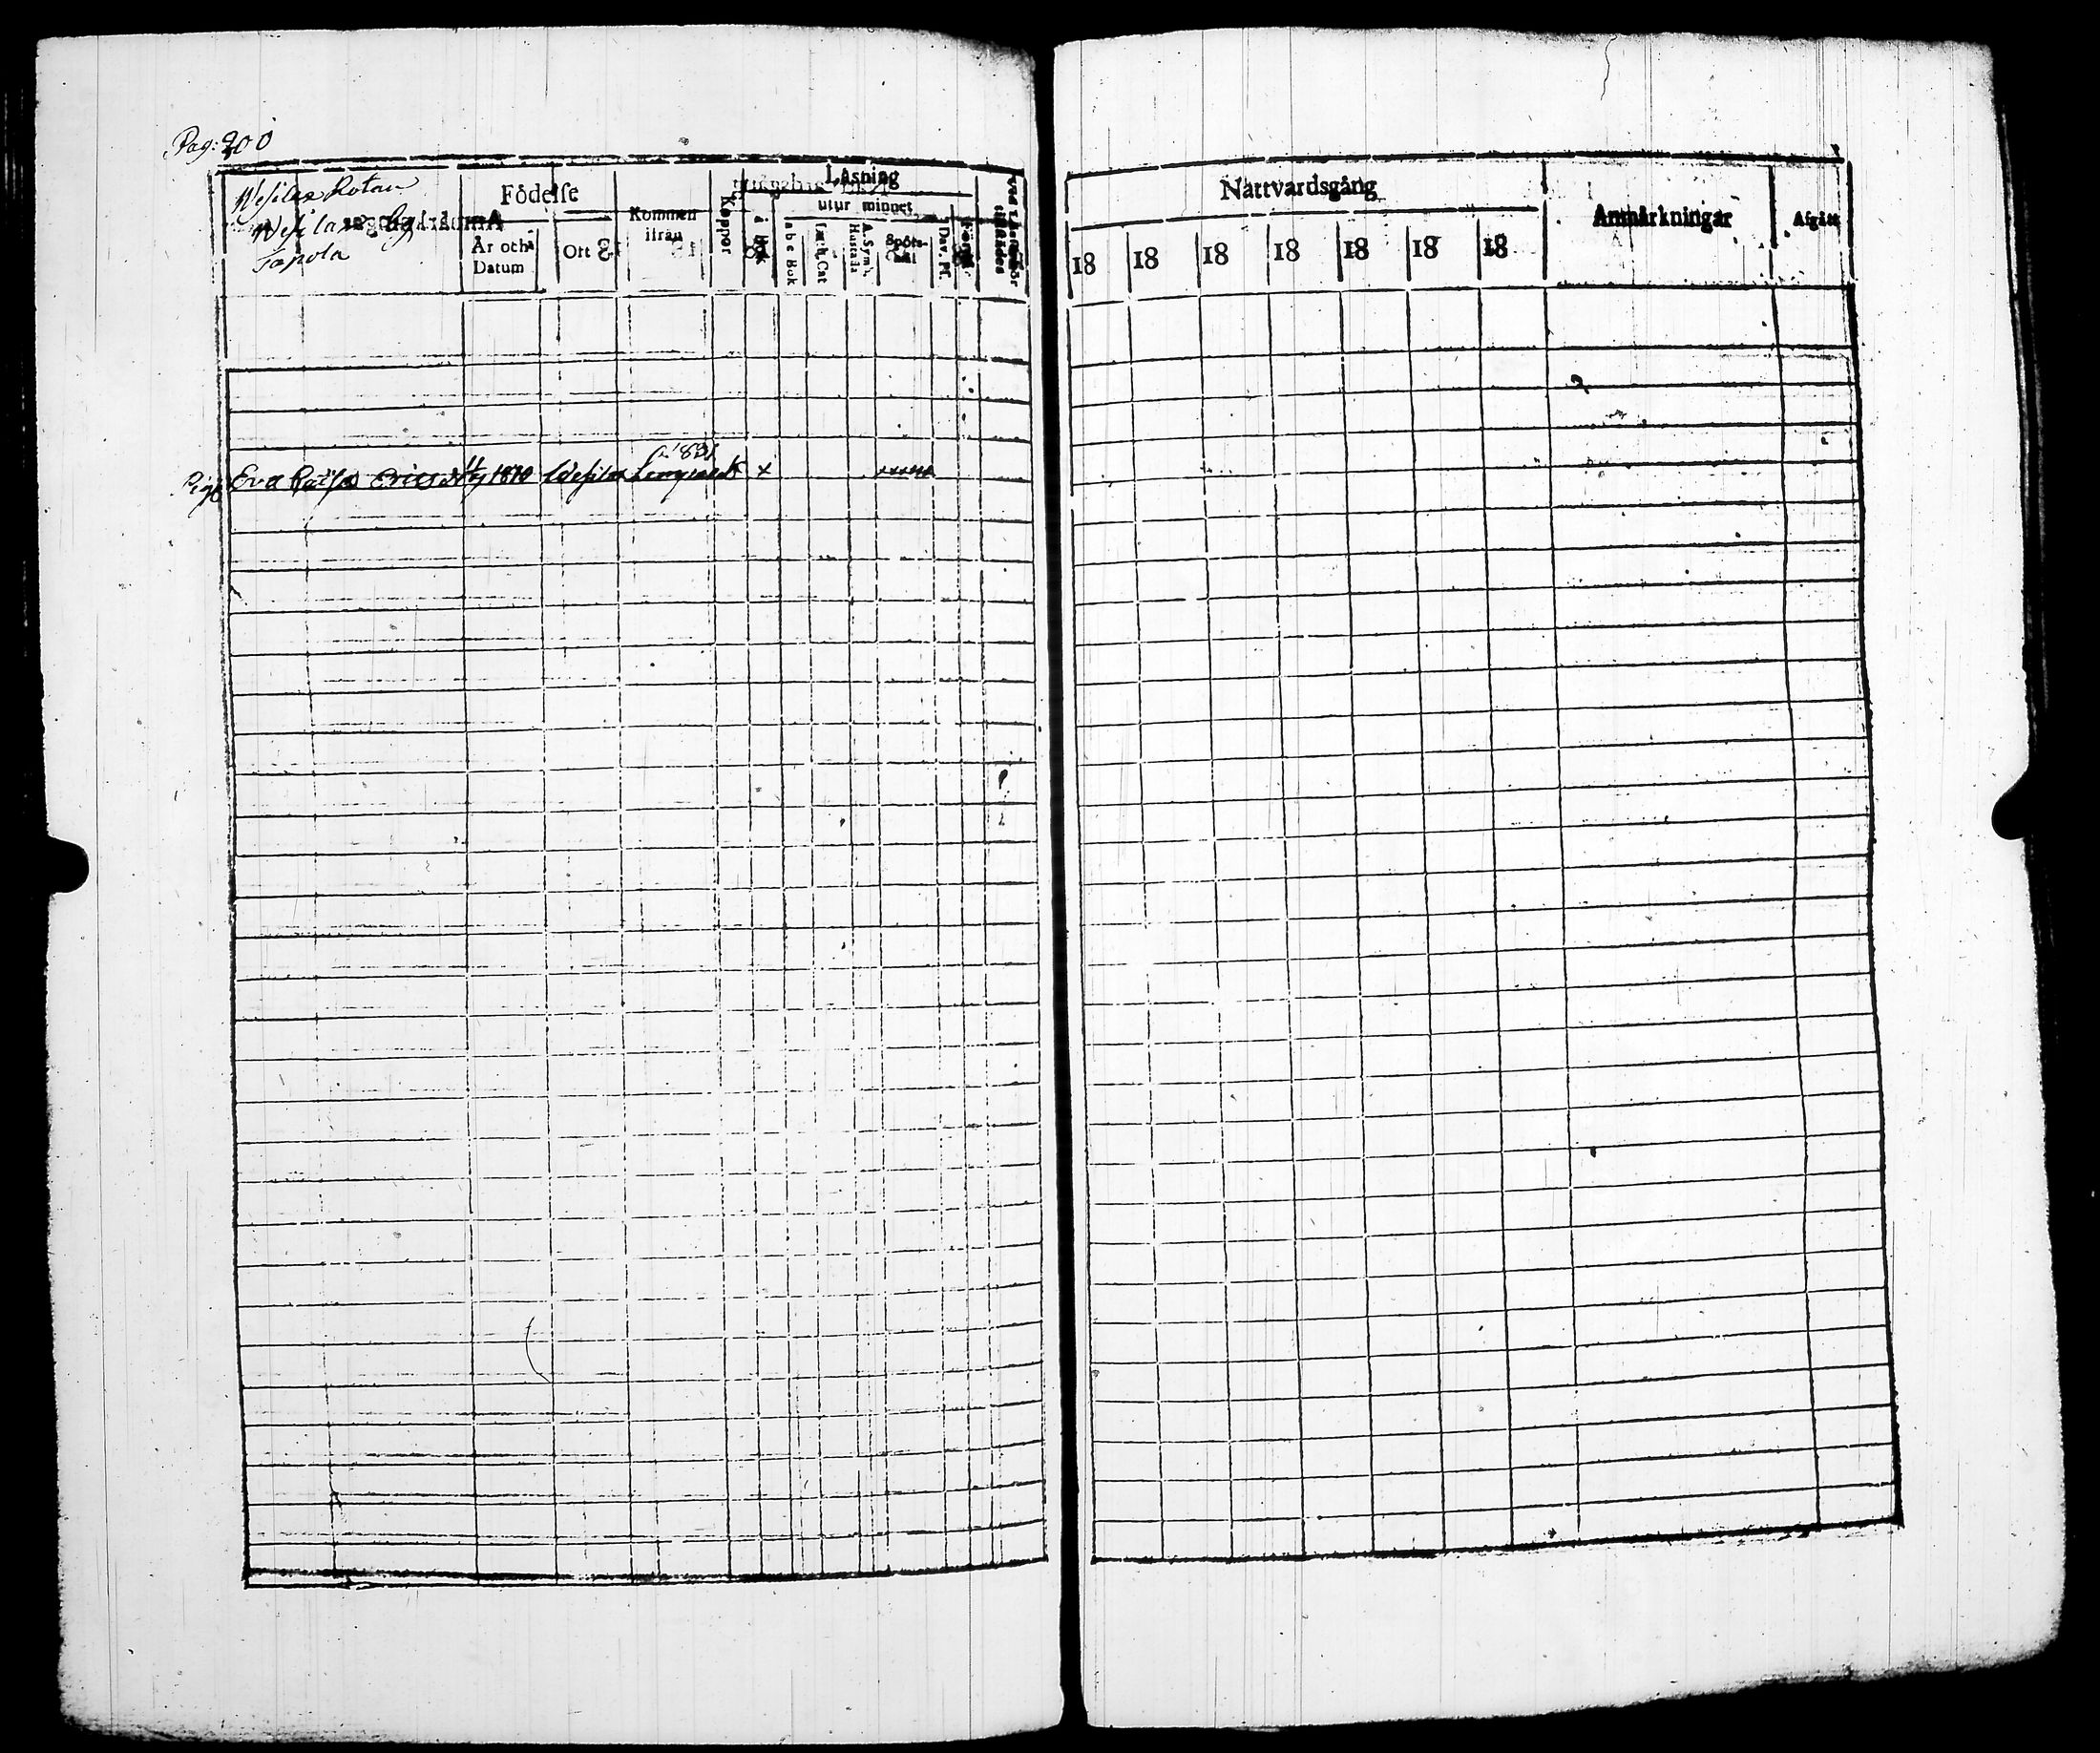 Pag: 200
Wesilax Rotan
Wesilax by
Tapola
Födelse
År och Datum
Ort
Kommen ifrån
Koppor
Läsning
i Bok
utur minnet
a b c Bok
Luth. Cat
A. Symb.
Hustafla
Spörsmål
Dav. Ps.
Förstånd
Nattvardsgång
18 18 18 18 18 18 18
Anmärkningar
Afgått
1831
Pig. Eva Caisa Ericsd 1810 Wesilax Lempäälä × ×××××